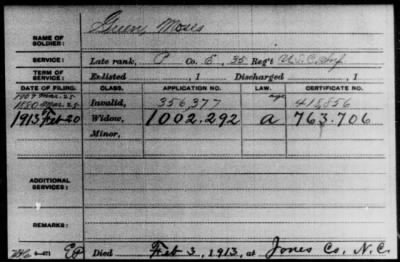 NAME OF SOLDIER: Green, Moses
SERVICE: Late rank, P Co. E, 35 Reg't U.S.C. Inf.
TERM OF SERVICE: Enlisted , 1 Discharged , 1
DATE OF FILING. CLASS. APPLICATION NO. LAW. CERTIFICATE NO.
1880 Mar. 25 Invalid, 356,377 415856
1913 Feb 20 Widow, 1002.292 a 763.706
Minor,
ADDITIONAL SERVICES:
REMARKS:
Died Feb 3, 1913, at Jones Co. N.C.